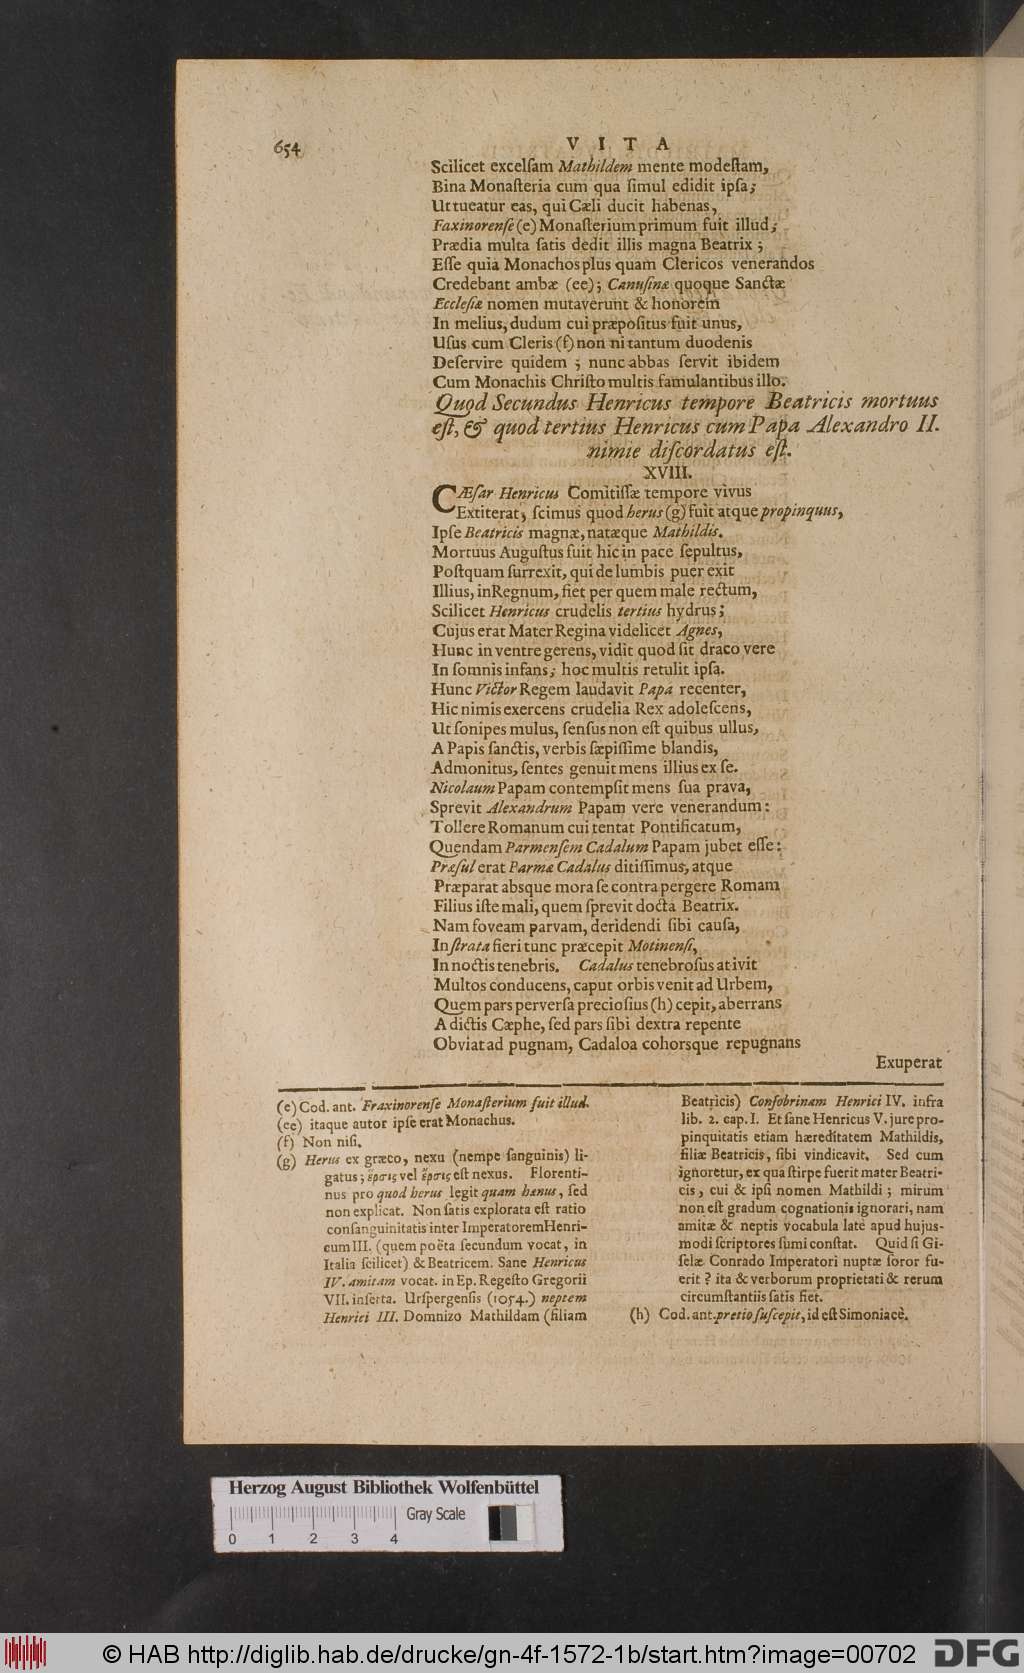 654
VITA
Scilicet excelſam Mathildem mente modeſtam,
Bina Monaſteria cum qua ſimul edidit ipſa;
Ut tueatur eas, qui Cæli ducit habenas,
Faxinorenſe (e) Monaſterium primum fuit illud;
Prædia multa ſatis dedit illis magna Beatrix;
Eſſe quia Monachos plus quam Clericos venerandos
Credebant ambæ (ee); Canuſinæ quoque Sanctæ
Eccleſiæ nomen mutaverunt & honorem
In melius, dudum cui præpoſitus fuit unus,
Uſus cum Cleris (f) non ni tantum duodenis
Deſervire quidem; nunc abbas ſervit ibidem
Cum Monachis Chriſto multis famulantibus illo.
Quod Secundus Henricus tempore Beatricis mortuus
eſt, & quod tertius Henricus cum Papa Alexandro II.
nimie diſcordatus eſt.
XVIII.
CÆſar Henricus Comitiſſæ tempore vivus
Extiterat, ſcimus quod herus (g) fuit atque propinquus,
Ipſe Beatricis magnæ, natæque Mathildis.
Mortuus Auguſtus fuit hic in pace ſepultus,
Poſtquam ſurrexit, qui de lumbis puer exit
Illius, in Regnum, fiet per quem male rectum,
Scilicet Henricus crudelis tertius hydrus;
Cujus erat Mater Regina videlicet Agnes,
Hunc in ventre gerens, vidit quod ſit draco vere
In ſomnis infans; hoc multis retulit ipſa.
Hunc Victor Regem laudavit Papa recenter,
Hic nimis exercens crudelia Rex adoleſcens,
Ut ſonipes mulus, ſenſus non eſt quibus ullus,
A Papis ſanctis, verbis ſæpiſſime blandis,
Admonitus, ſentes genuit mens illius ex ſe.
Nicolaum Papam contempſit mens ſua prava,
Sprevit Alexandrum Papam vere venerandum:
Tollere Romanum cui tentat Pontificatum,
Quendam Parmenſem Cadalum Papam jubet eſſe:
Præſul erat Parmæ Cadalus ditiſſimus, atque
Præparat absque mora ſe contra pergere Romam
Filius iſte mali, quem ſprevit docta Beatrix.
Nam foveam parvam, deridendi ſibi cauſa,
In ſtrata fieri tunc præcepit Motinenſi,
In noctis tenebris. Cadalus tenebroſus at ivit
Multos conducens, caput orbis venit ad Urbem,
Quem pars perverſa precioſius (h) cepit, aberrans
A dictis Cæphe, ſed pars ſibi dextra repente
Obviat ad pugnam, Cadaloa cohorsque repugnans
Exuperat
(e) Cod. ant. Fraxinorenſe Monaſterium fuit illud.
(ee) itaque autor ipſe erat Monachus.
(f) Non niſi.
(g) Herus ex græco, nexu (nempe ſanguinis) li-
gatus; ἕρσις vel ἔρσις eſt nexus. Florenti-
nus pro quod herus legit quam hanus, ſed
non explicat. Non ſatis explorata eſt ratio
conſanguinitatis inter Imperatorem Henri-
cum III. (quem poëta ſecundum vocat, in
Italia ſcilicet) & Beatricem. Sane Henricus
IV. amitam vocat. in Ep. Regeſto Gregorii
VII. inſerta. Urſpergenſis (1054.) neptem
Henrici III. Domnizo Mathildam (filiam
Beatricis) Conſobrinam Henrici IV. infra
lib. 2. cap. I. Et ſane Henricus V. jure pro-
pinquitatis etiam hæreditatem Mathildis,
filiæ Beatricis, ſibi vindicavit. Sed cum
ignoretur, ex qua ſtirpe fuerit mater Beatri-
cis, cui & ipſi nomen Mathildi; mirum
non eſt gradum cognationis ignorari, nam
amitæ & neptis vocabula late apud hujus-
modi ſcriptores ſumi conſtat. Quid ſi Gi-
ſelæ Conrado Imperatori nuptæ ſoror fu-
erit? ita & verborum proprietati & rerum
circumſtantiis ſatis fiet.
(h) Cod. ant. pretio ſuſcepit, id eſt Simoniacè.
Herzog August Bibliothek Wolfenbüttel
Gray Scale
0 1 2 3 4
© HAB http://diglib.hab.de/drucke/gn-4f-1572-1b/start.htm?image=00702
DFG